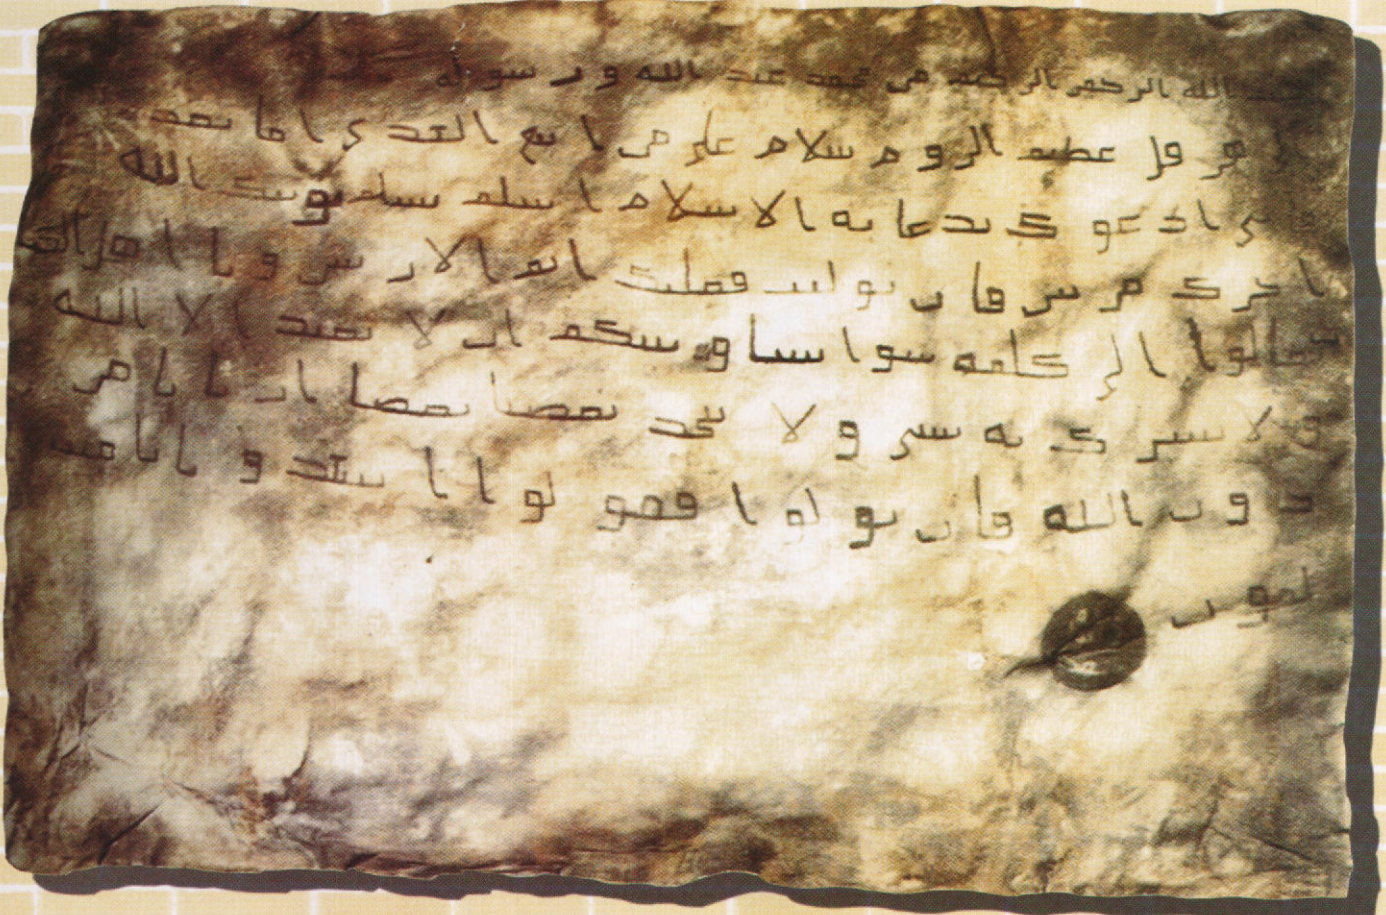 بسم الله الرحمن الرحيم من محمد عبد الله و رسوله
الى هرقل عظيم الروم سلام على من اتبع الهدى اما بعد
فانى ادعوك بدعاية الاسلام اسلم تسلم يوتك الله
اجرك مرتين فان توليت فعليك اثم الاريسين و يا اهل الكتب
تعالوا الى كلمة سوا بيننا و بينكم ان لا نعبد الا الله
و لا نشرك به شى و لا يتخذ بعضنا بعضا اربابا من
دون الله فان تولوا فقولوا اشهدوا بانا مسـ
لمون